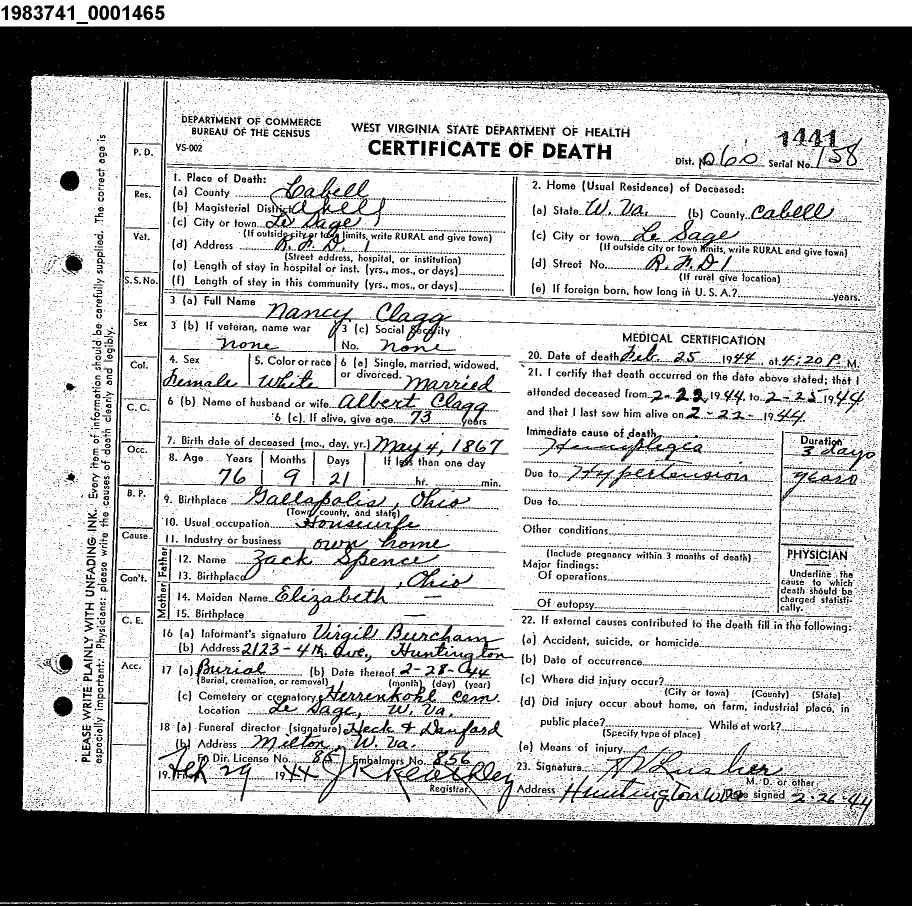 1983741_0001465
DEPARTMENT OF COMMERCE
BUREAU OF THE CENSUS
VS-002
WEST VIRGINIA STATE DEPARTMENT OF HEALTH
CERTIFICATE OF DEATH
1441
Dist. No. 060 Serial No. 158
PLEASE WRITE PLAINLY WITH UNFADING INK. Every item of information should be carefully supplied. The correct age is
especially important. Physicians: please write the causes of death clearly and legibly.
P. D.
Res.
Vet.
S. S. No.
Sex
Col.
C. C.
Occ.
B. P.
Cause
Con't.
C. E.
Acc.
1. Place of Death:
(a) County Cabell
(b) Magisterial District
(c) City or town Le Sage
(If outside city or town limits, write RURAL and give town)
(d) Address R. F. D. 1
(Street address, hospital, or institution)
(e) Length of stay in hospital or inst. (yrs., mos., or days)
(f) Length of stay in this community (yrs., mos., or days)
2. Home (Usual Residence) of Deceased:
(a) State W. Va. (b) County Cabell
(c) City or town Le Sage
(If outside city or town limits, write RURAL and give town)
(d) Street No. R. F. D 1
(If rural give location)
(e) If foreign born, how long in U. S. A.? years.
3 (a) Full Name Nancy Clagg
3 (b) If veteran, name war none
3 (c) Social Security No. none
4. Sex Female
5. Color or race White
6 (a) Single, married, widowed, or divorced. Married
6 (b) Name of husband or wife Albert Clagg
6 (c). If alive, give age 73 years
7. Birth date of deceased (mo., day, yr.) May 4, 1867
8. Age Years Months Days If less than one day
76 9 21 hr. min.
9. Birthplace Gallapolis, Ohio
(Town, county, and state)
10. Usual occupation Housewife
11. Industry or business own home
Father
12. Name Zack Spence
13. Birthplace , Ohio
Mother
14. Maiden Name Elizabeth —
15. Birthplace —
16 (a) Informant's signature Virgil Burcham
(b) Address 2123 - 4th Ave., Huntington
17 (a) Burial (b) Date thereof 2-28-44
(Burial, cremation, or removal) (month) (day) (year)
(c) Cemetery or crematory Herrenkohl Cem.
Location Le Sage, W. Va.
18 (a) Funeral director (signature) Heck & Danford
(b) Address Milton, W. Va.
Dir. License No. Embalmers No. 856
19. Feb 29 1944
Registrar.
MEDICAL CERTIFICATION
20. Date of death Feb. 25 1944 at 4:20 P. M.
21. I certify that death occurred on the date above stated; that I
attended deceased from 2-22 1944, to 2-25 1944
and that I last saw him alive on 2-22- 1944.
Immediate cause of death Duration
Hemiplegia 3 days
Due to Hypertension years
Due to
Other conditions
(Include pregnancy within 3 months of death)
Major findings:
Of operations
Of autopsy
PHYSICIAN
Underline the
cause to which
death should be
charged statisti-
cally.
22. If external causes contributed to the death fill in the following:
(a) Accident, suicide, or homicide
(b) Date of occurrence
(c) Where did injury occur?
(City or town) (County) (State)
(d) Did injury occur about home, on farm, industrial place, in
public place? While at work?
(Specify type of place)
(e) Means of injury
23. Signature
M. D. or other
Address Huntington W Va Date signed 2-26-44